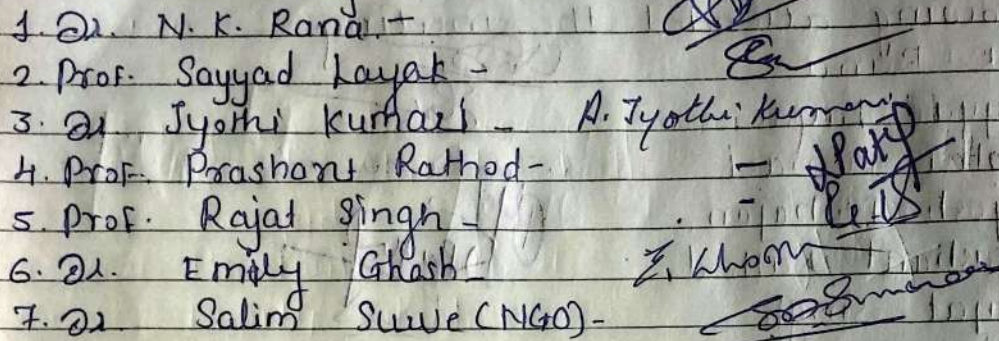 1. Dr. N. K. Rana -
2. Prof. Sayyad Layak -
3. Dr Jyothi Kumari - A. Jyothi Kumari
4. Prof. Prashant Rathod - -
5. Prof. Rajat Singh - -
6. Dr. Emily Ghash -
7. Dr Salim Suwe (NGO) -